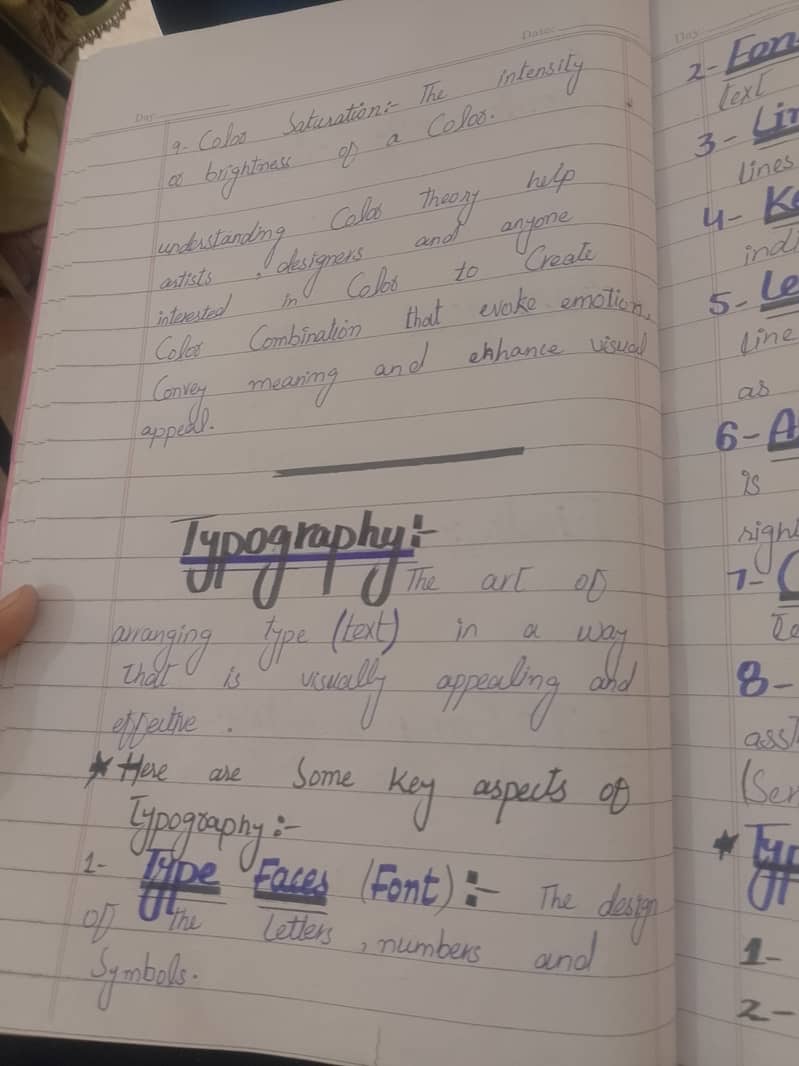 Date:
Day:
9- Color Saturation:- The intensity
or brightness of a Color.
understanding Color Theory help
artists, designers and anyone
interested in Color to Create
Color Combination that evoke emotion,
Convey meaning and enhance visual
appeal.
Typography:-
The art of
arranging type (text) in a way
That is visually appealing and
effective.
* Here are Some Key aspects of
Typography:-
1- Type Faces (Font):- The design
of the letters, numbers and
Symbols.
Day
2- Fon
text
3- Lin
lines
4- Ke
indi
5- Le
line
as
6- A
is
right
7-
8-
(Ser
* Typ
1-
2-